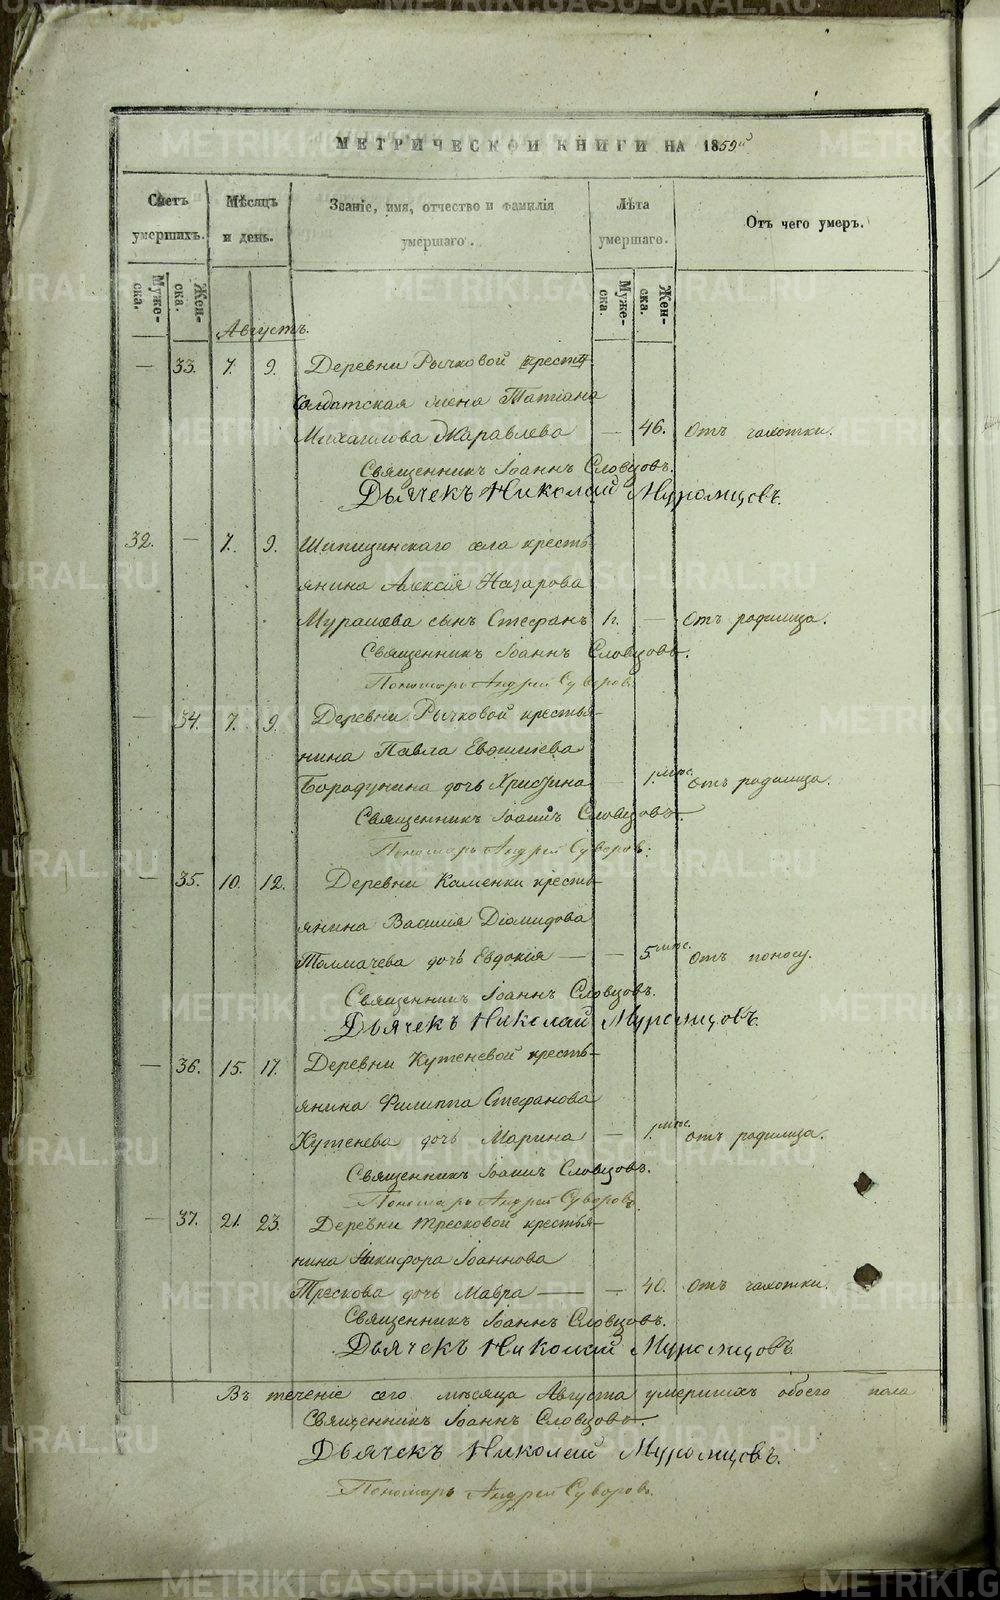 МЕТРИЧЕСКОЙ КНИГИ НА 1859й
Счетъ умершихъ. Мѣсяцъ и день. Званіе, имя, отчество и фамилія умершаго. Лѣта умершаго. Отъ чего умеръ.
Муже-ска. Жен-ска. Муже-ска. Жен-ска.
Августъ.
— 33. 7. 9. Деревни Рычковой
солдатская жена Татіана
Михаилова Журавлева — 46. отъ чахотки.
Священникъ Іоаннъ Словцовъ.
Дьячекъ Николай Муромцовъ.
32. — 7. 9. Шипицинскаго села кресть
янина Алексія Назарова
Мурашева сынъ Стефанъ 1г. — отъ родимца.
Священникъ Іоаннъ Словцовъ.
Пономарь Андрей Суворовъ.
— 34. 7. 9. Деревни Рычковой крестья-
нина Павла
Бородунина дочь Христина — 1.мѣс. отъ родимца.
Священникъ Іоаннъ Словцовъ.
Пономарь Андрей Суворовъ.
— 35. 10. 12. Деревни Каменки кресть-
янина Василія Діомидова
Толмачева дочь Евдокія — — 5 мѣс. отъ поносу.
Священникъ Іоаннъ Словцовъ.
Дьячекъ Николай Муромцовъ.
— 36. 15. 17. Деревни Кутеневой кресть-
янина Филиппа Стефанова
Кутенева дочь Марина — 1.мѣс. отъ родимца.
Священникъ Іоаннъ Словцовъ.
Пономарь Андрей Суворовъ.
— 37. 21. 23. Деревни Тресковой крестья-
нина Никифора Іоаннова
Трескова дочь Мавра — — 40. отъ чахотки.
Священникъ Іоаннъ Словцовъ.
Дьячекъ Николай Муромцовъ
Въ теченіе сего мѣсяца Августа умершихъ обоего пола
Священникъ Іоаннъ Словцовъ.
Дьячекъ Николай Муромцовъ.
Пономарь Андрей Суворовъ.
METRIKI.GASO-URAL.RU